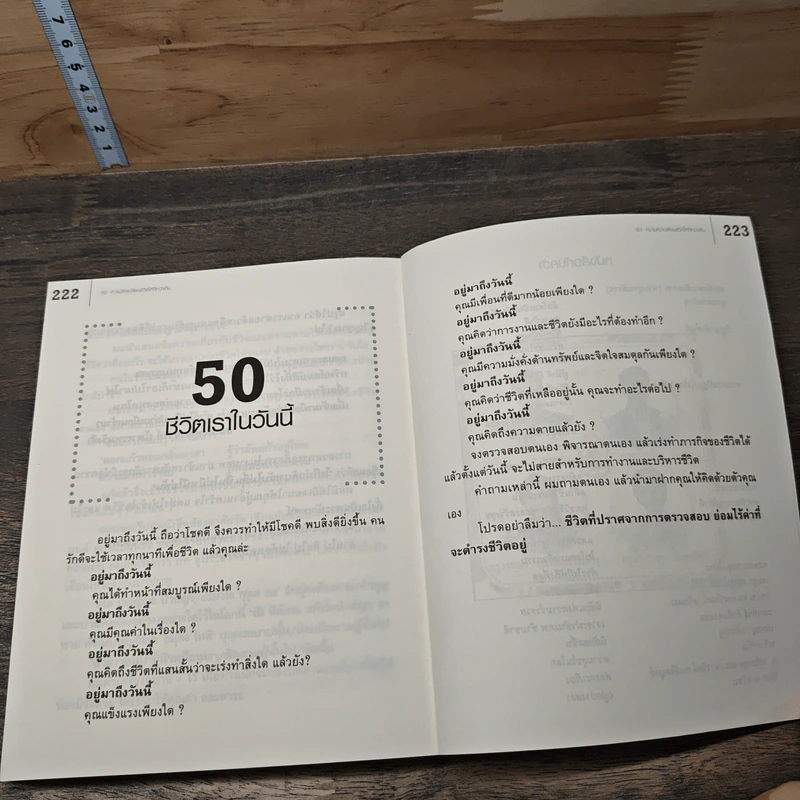 7
6
5
4
3
2
1
222
50
ชีวิตเราในวันนี้
อยู่มาถึงวันนี้ ถือว่าโชคดี จึงควรทำให้มีโชคดี พบสิ่งดียิ่งขึ้น คน
รักดีจะใช้เวลาทุกนาทีเพื่อชีวิต แล้วคุณล่ะ
อยู่มาถึงวันนี้
คุณได้ทำหน้าที่สมบูรณ์เพียงใด ?
อยู่มาถึงวันนี้
คุณมีคุณค่าในเรื่องใด ?
อยู่มาถึงวันนี้
คุณคิดถึงชีวิตที่แสนสั้นว่าจะเร่งทำสิ่งใด แล้วยัง?
อยู่มาถึงวันนี้
คุณแข็งแรงเพียงใด ?
223
อยู่มาถึงวันนี้
คุณมีเพื่อนที่ดีมากน้อยเพียงใด ?
อยู่มาถึงวันนี้
คุณคิดว่าการงานและชีวิตยังมีอะไรที่ต้องทำอีก ?
อยู่มาถึงวันนี้
คุณมีความมั่งคั่งด้านทรัพย์และจิตใจสมดุลกันเพียงใด ?
อยู่มาถึงวันนี้
คุณคิดว่าชีวิตที่เหลืออยู่นั้น คุณจะทำอะไรต่อไป ?
อยู่มาถึงวันนี้
คุณคิดถึงความตายแล้วยัง ?
จงตรวจสอบตนเอง พิจารณาตนเอง แล้วเร่งทำภารกิจของชีวิตได้
แล้วตั้งแต่วันนี้ จะไม่สายสำหรับการทำงานและบริหารชีวิต
คำถามเหล่านี้ ผมถามตนเอง แล้วนำมาฝากคุณให้คิดด้วยตัวคุณ
เอง
โปรดอย่าลืมว่า... ชีวิตที่ปราศจากการตรวจสอบ ย่อมไร้ค่าที่
จะดำรงชีวิตอยู่